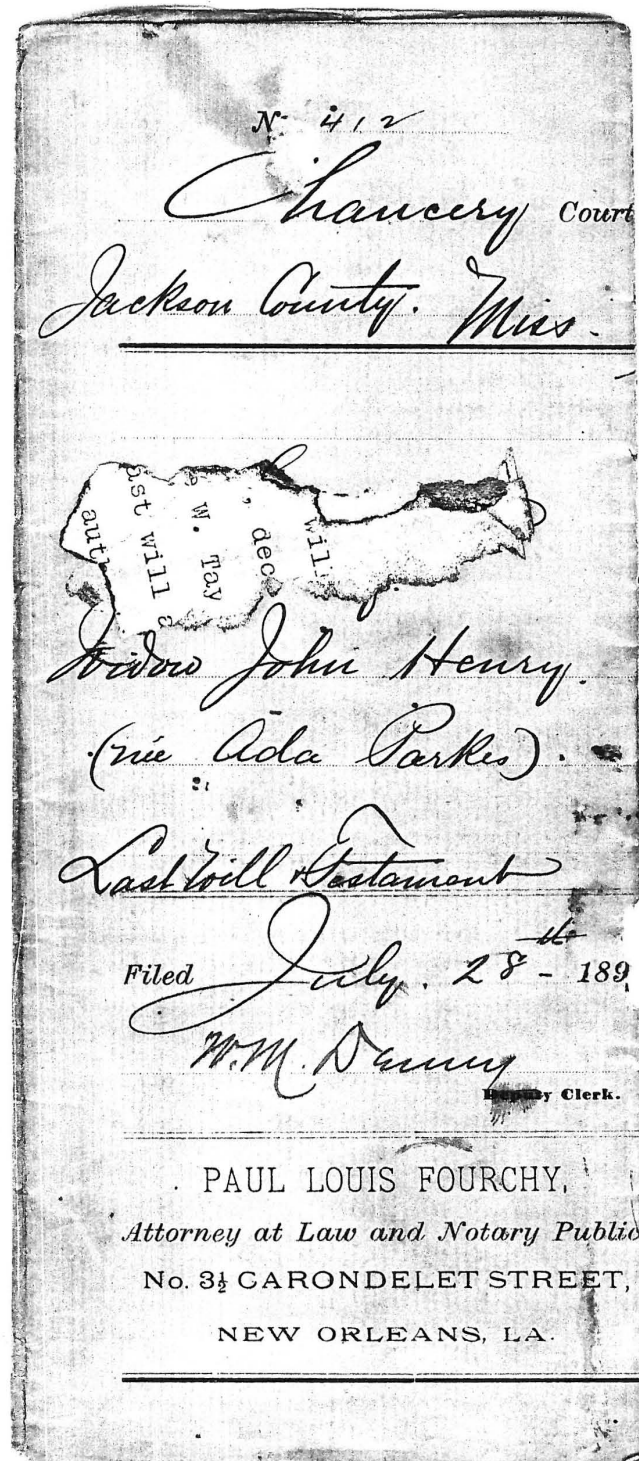 No 412
Chancery Court
Jackson County. Miss.
wil
, dec
W. Tay
ast will a
aut
Widow John Henry.
(née Ada Parkes).
Last Will & Testament
Filed July. 28th - 189
W.M. Denny
Deputy Clerk.
PAUL LOUIS FOURCHY,
Attorney at Law and Notary Public
No. 3½ CARONDELET STREET,
NEW ORLEANS, LA.